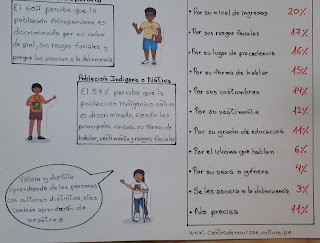 El 60% percibe que la
población Afroperuana es
discriminada por su color
de piel, sus rasgos faciales y
porque los asocian a la delincuencia
Población Indígena o Nativa
El 57% percibe que la
población indígena o nativa
es discriminada, siendo las
principales causas, su forma de
hablar, vestimenta y rasgos faciales
Valora y disfruta
aprendiendo de las personas
con culturas distintas, ellos
también aprenderán de
nosotros
• Por su nivel de ingresos 20%
• Por sus rasgos faciales 17%
• Por su lugar de procedencia 16%
• Por su forma de hablar 15%
• Por sus costumbres 14%
• Por su vestimenta 12%
• Por su grado de educación 11%
• Por el idioma que hablan 6%
• Por su sexo o género 4%
• Se les asocia a la delincuencia 3%
• No precisa 11%